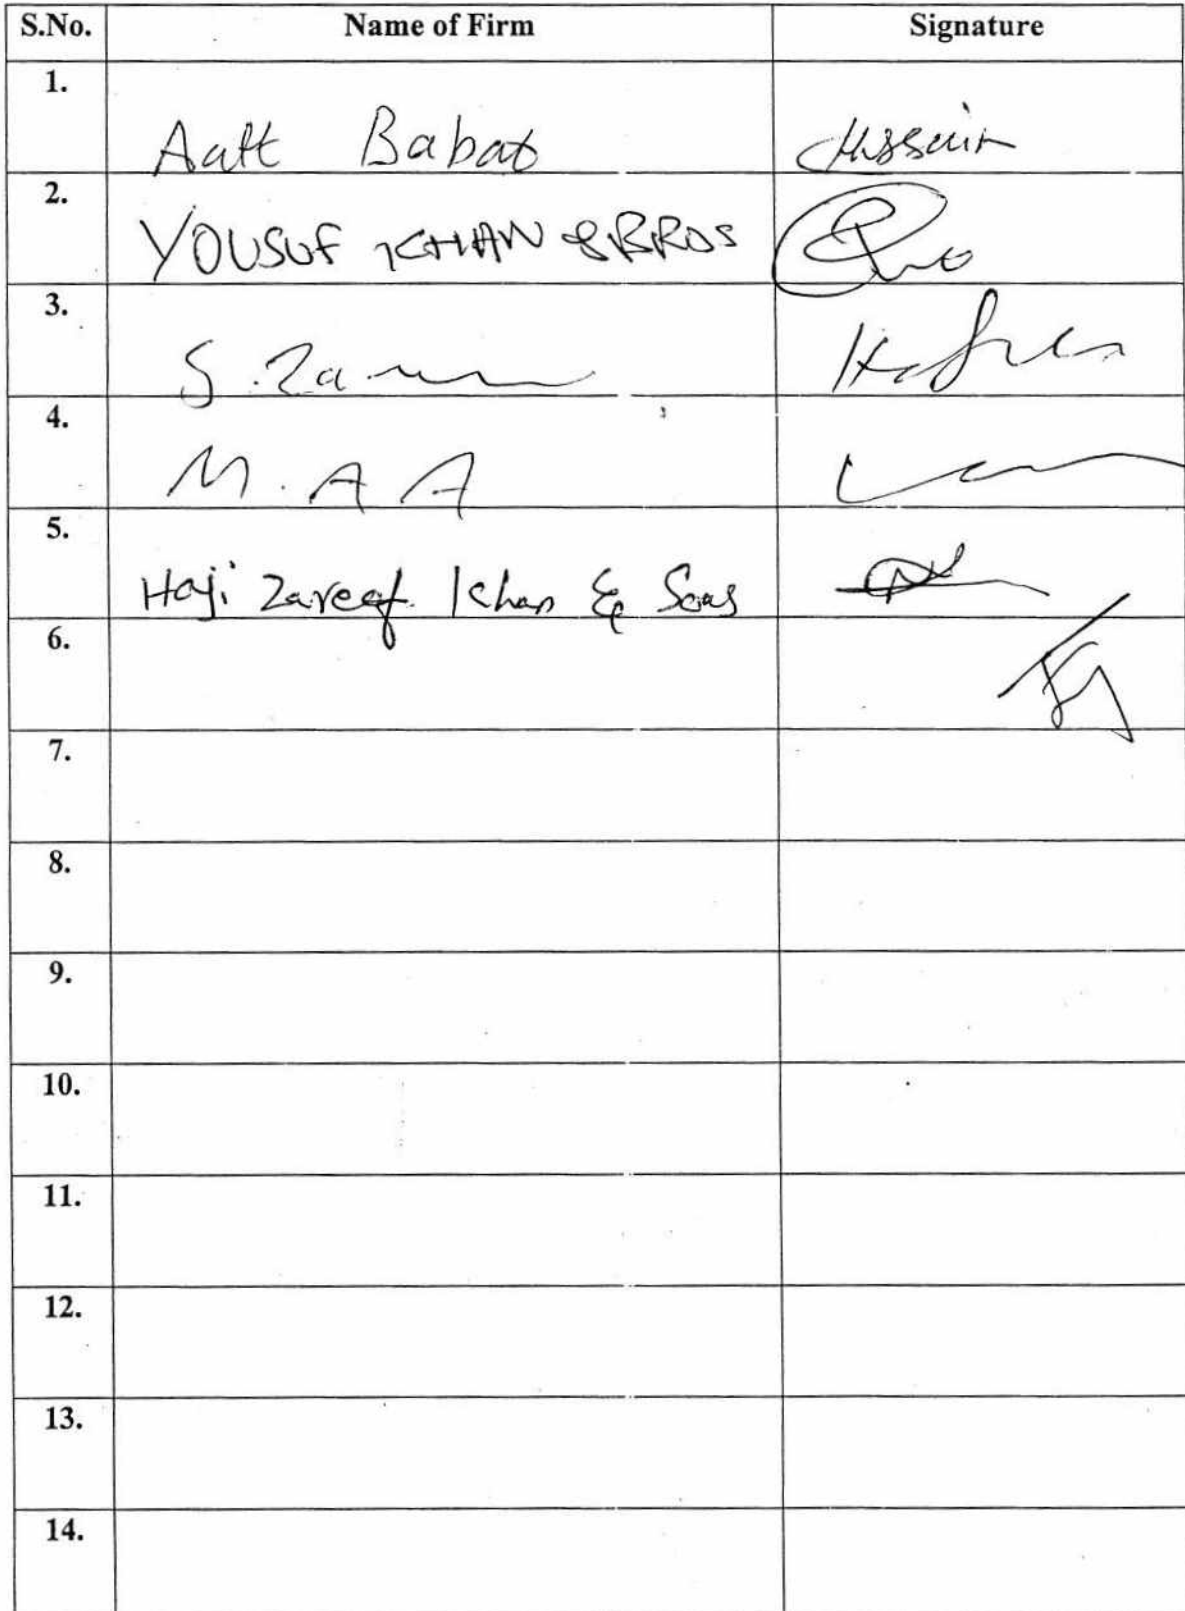 S.No. Name of Firm Signature
1.
Aatt Babat Hussain
2.
YOUSUF KHAN & BROS
3.
S. Zaman
4.
M. A A
5.
Haji Zareef Khan & Sons
6.
7.
8.
9.
10.
11.
12.
13.
14.